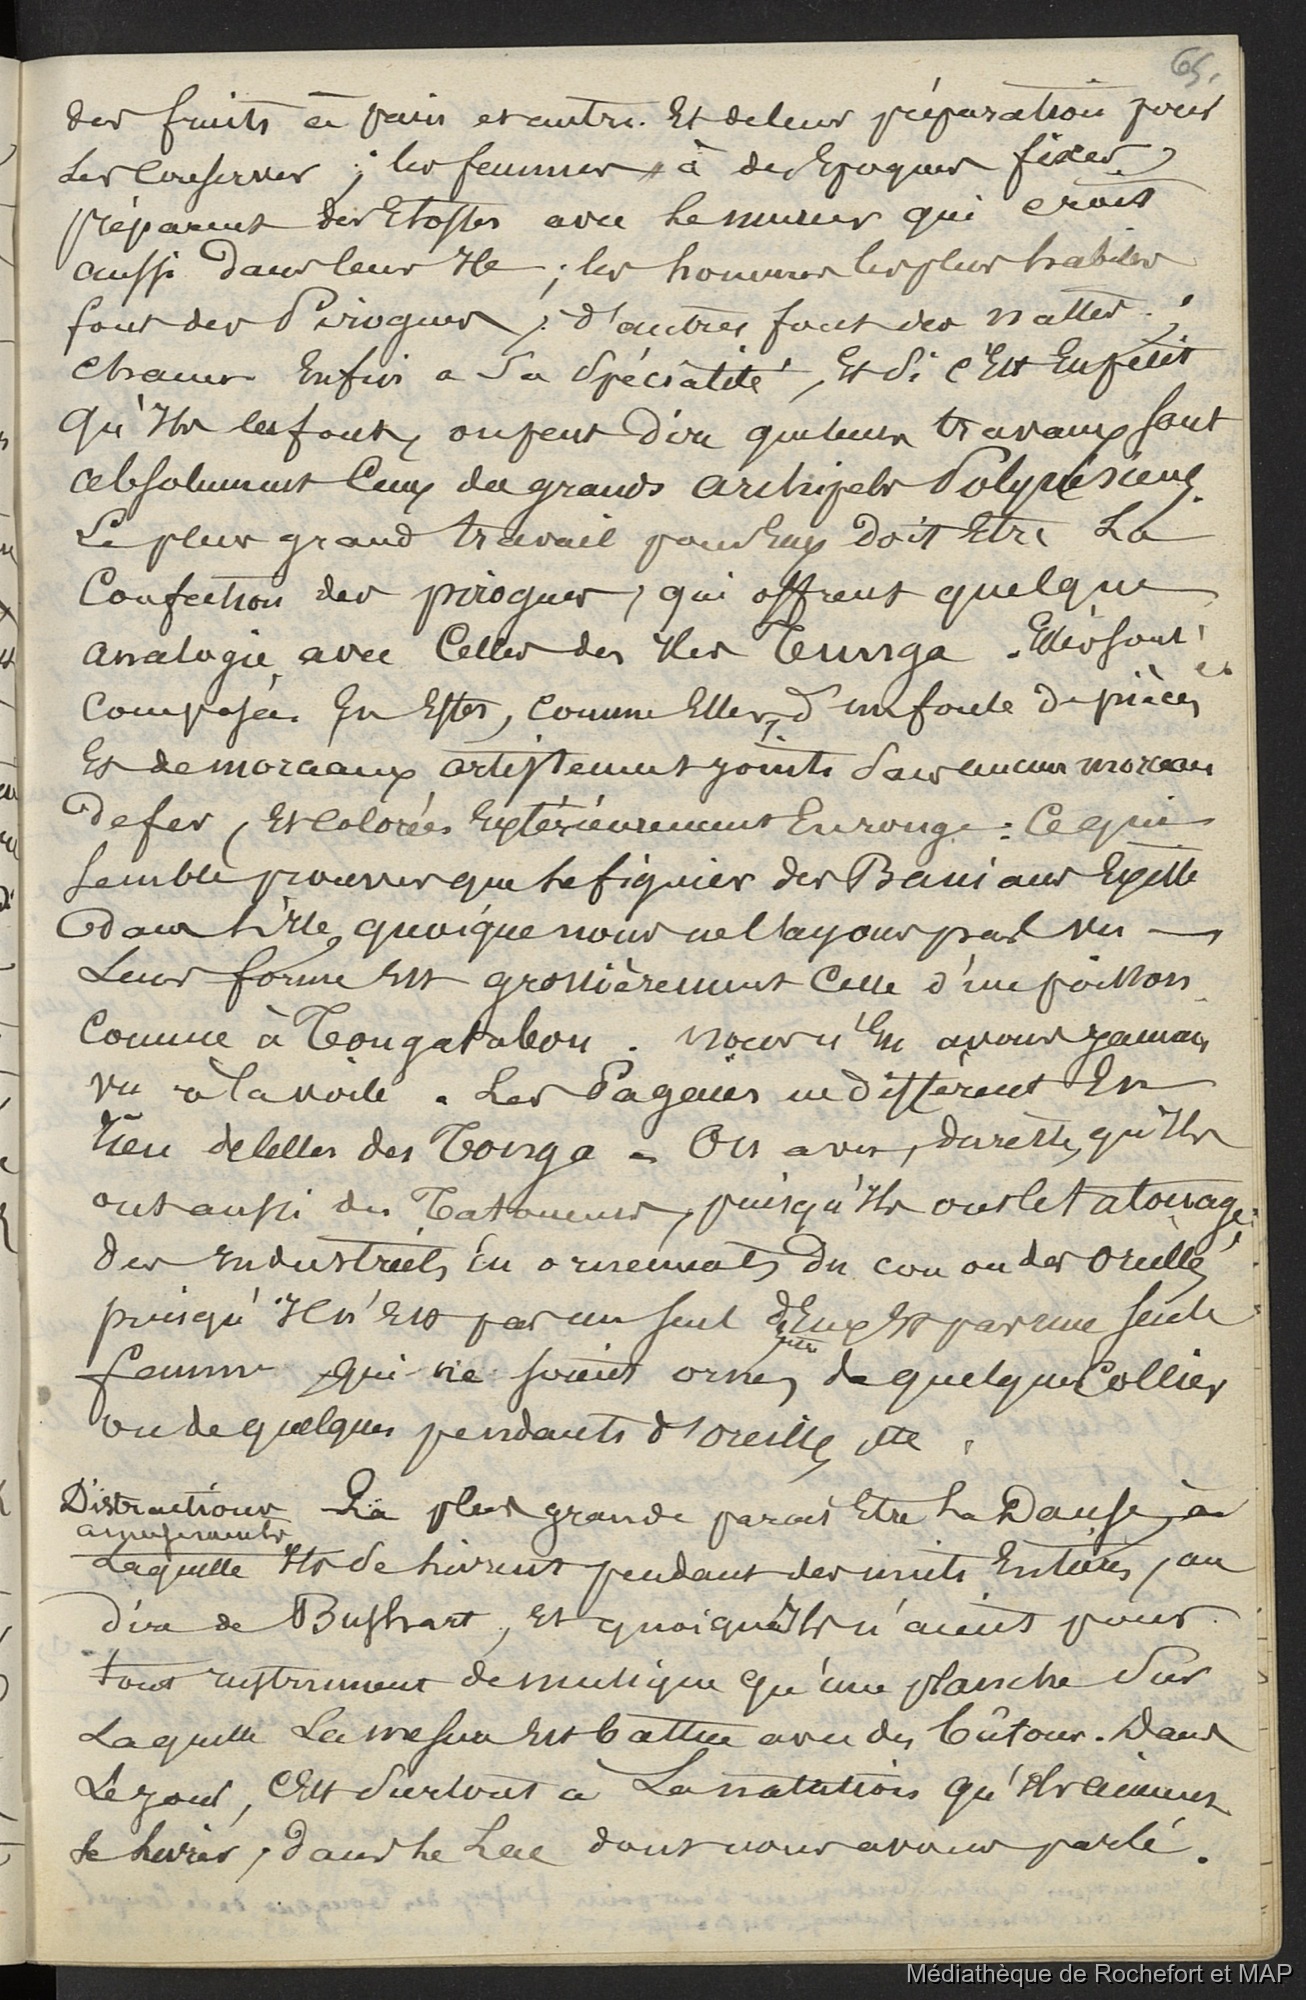 65.
des fruits à pain et autre. Et de leur préparation pour
les conserver ; les femmes à des Epoques fixes,
préparent des Etoffes avec le murier qui croit
aussi Dans leur Ile ; les hommes les plus habiles
font des Pirogues ; d'autres font des nattes ;
chacun Enfin a Sa Spécialité, Et Si c'Est En petit
qu'Ils les font, on peut Dire que leurs travaux sont
absolument Ceux des grands archipels Polynésiens.
Le plus grand travail pour Eux Doit Etre La
Confection des pirogues, qui offrent quelque
analogie avec Celles des Iles Tunga. Elles sont
composées En Effet, comme Elles, d'une foule De pièces
Et de morceaux artistement joints Sans aucun morceau
De fer, Et colorées Extérieurement En rouge : Ce qui
semble prouver que le figuier des Banians Existe
dans l'Ile, quoique nous ne l'ayons pas vu —
Leur forme Est grossièrement Celle d'un poisson
Comme à Tongatabou. nous n'En avons jamais
vu à la voile. Les Pagaies ne Diffèrent En
rien de Celles des Tonga - On a vu, Du reste, qu'Ils
ont aussi des Tatoueurs, puisqu'Ils ont le tatouage ;
Des Industriels En ornements Du cou ou des oreilles,
puisqu'Il n'Est pas un seul d'Eux Et pas une seule
femme qui ne soient ornés de quelques Collier
ou de quelques pendants d'oreilles, etc.
Distractions La plus grande parait Etre la Danse, à
amusements
Laquelle Ils Se livrent pendant des nuits Entières, au
Dire de Bushart, Et quoiqu'Ils n'aient pour
tout Instrument de musique qu'une planche Sur
Laquelle La mesure Est battue avec des bâtons. Dans
Le jour, C'Est Surtout à La natation qu'Ils aiment
Se livrer, Dans le Lac dont nous avons parlé.
Médiathèque de Rochefort et MAP